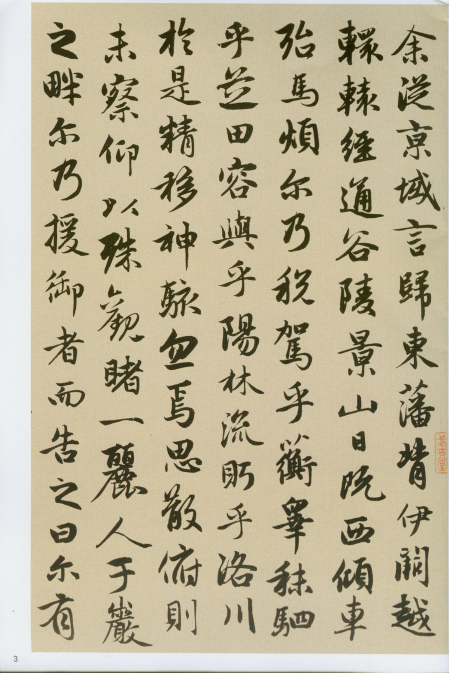 余從京域言歸東藩背伊闕越
轘轅經通谷陵景山日既西傾車
殆馬煩尔乃税駕乎蘅皋秣駟
乎芝田容與乎陽林流眄乎洛川
於是精移神駭忽焉思散俯則
未察仰以殊觀睹一麗人于巖
之畔尔乃援御者而告之曰尔有
3